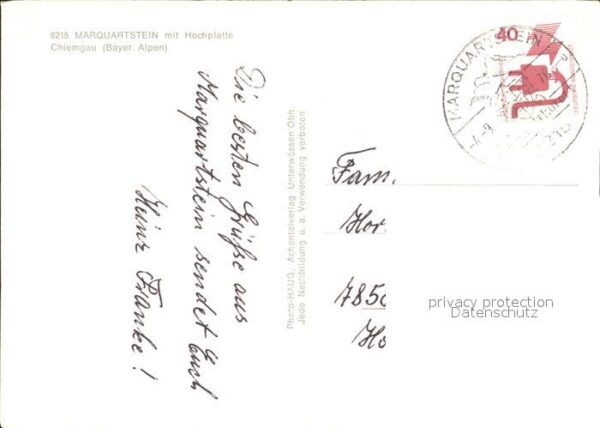 8215 MARQUARTSTEIN mit Hochplatte
Chiemgau (Bayer. Alpen)
Die besten Grüße aus
Marquartstein sendet Euch
Heinz Franke!
Photo-HAUG, Achentalverlag Unterwössen Obb.
Jede Nachbildung u. a. Verwendung verboten
40
MARQUARTSTEIN
Fam.
Hor
785
Ho
privacy protection
Datenschutz